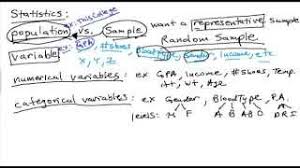 Statistics:
population vs. Sample want a representative Sample
ex: This College
Random Sample.
variable ex: GPA #Shoes Blood type, Gender, Income, etc
X, Y, Z
numerical variables: ex GPA, Income, #Shoes, Temp,
Ht, Wt, Age
categorical variables: ex Gender, BloodType, P.A.
levels: M F A B AB O D R I